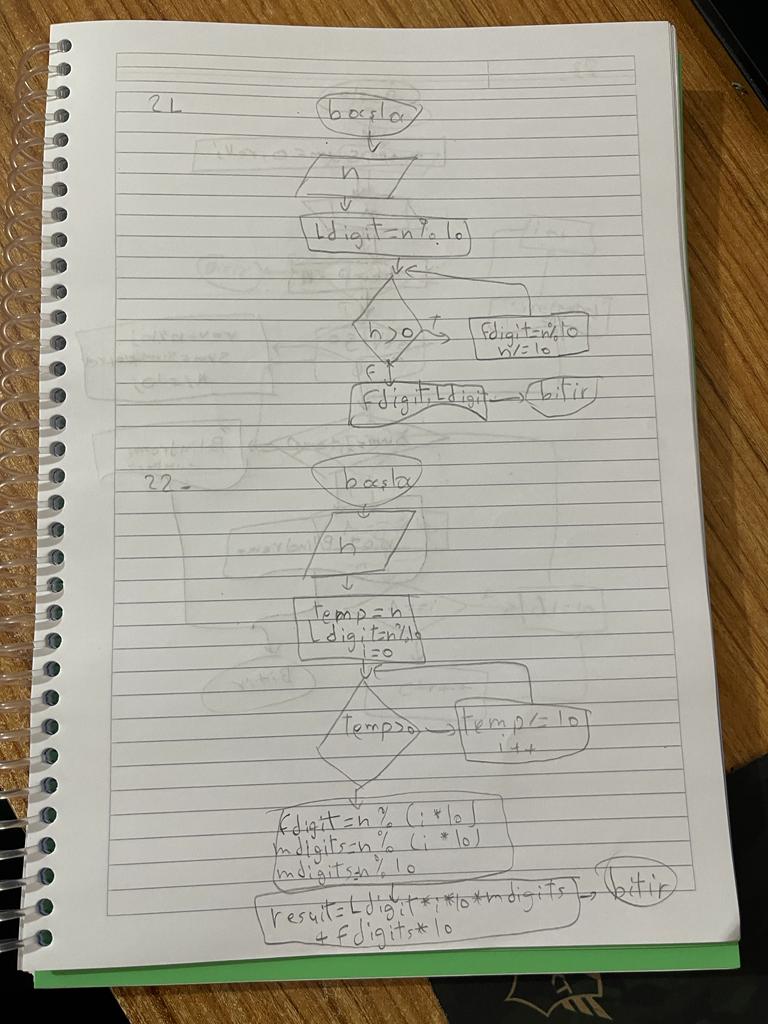 21
başla
n
Ldigit=n%10
n>0
T
Fdigit=n%10
n/=10
F
Fdigit,Ldigit
bitir
22-
başla
n
temp=n
Ldigit=n%10
i=0
temp>0
temp/=10
i++
Fdigit=n% (i*10)
mdigits=n% (i*10)
mdigits=n%10
result=Ldigit*i*10*mdigits
+Fdigits*10
bitir